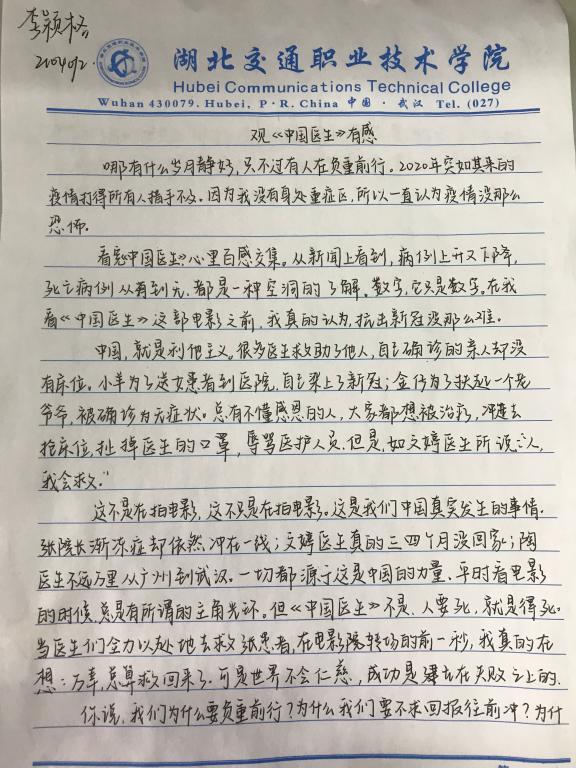 李颖格
湖北交通职业技术学院
Hubei Communications Technical College
Wuhan 430079. Hubei, P·R. China 中国·武汉 Tel. (027)
观《中国医生》有感
哪有什么岁月静好,只不过有人在负重前行。2020年突如其来的
疫情打得所有人措手不及。因为我没有身处重症区,所以一直认为疫情没那么
恐怖。
看完《中国医生》心里百感交集。从新闻上看到,病例上升又下降,
死亡病例从有到无,都是一种空洞的了解。数字,它只是数字。在我
看《中国医生》这部电影之前,我真的认为,抗击新冠没那么难。
中国,就是利他主义。很多医生救助了他人,自己确诊的亲人却没
有床位。小羊为了送女患者到医院,自己染上了新冠;金仔为了扶起一个老
爷爷,被确诊为无症状。总有不懂感恩的人,大家都想被治疗,冲进去
抢床位,扯掉医生的口罩,辱骂医护人员。但是,如文婷医生所说:“人,
我会救。”
这不是在拍电影,这不只是在拍电影。这是我们中国真实发生的事情。
张院长渐冻症却依然冲在一线;文婷医生真的三四个月没回家;陶
医生不远万里从广州到武汉。一切都源于这是中国的力量。平时看电影
的时候,总是有所谓的主角光环。但《中国医生》不是,人要死,就是得死。
当医生们全力以赴地去救张患者,在电影院转场的前一秒,我真的在
想:万幸,总算救回来了。可是世界不会仁慈,成功是建立在失败之上的。
你说,我们为什么要负重前行?为什么我们要不求回报往前冲?为什